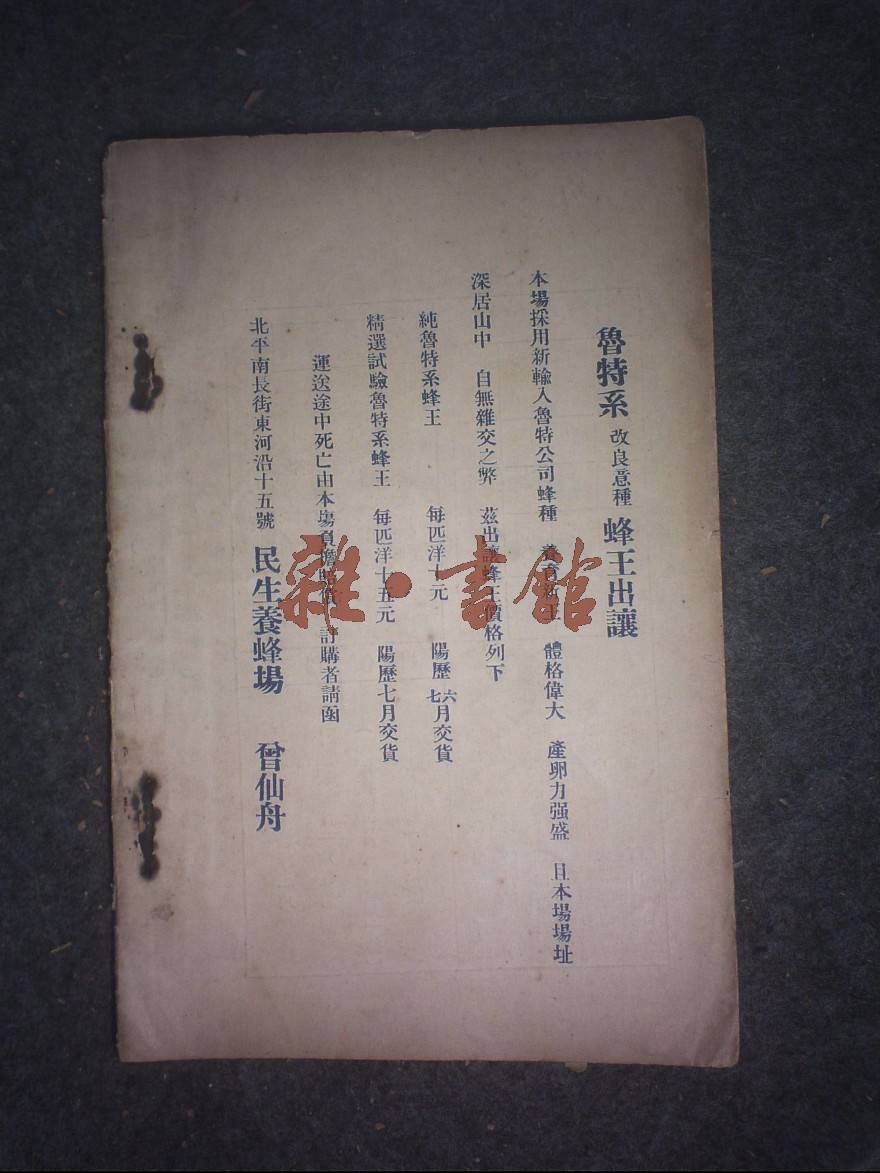 魯特系 改良意種 蜂王出讓
本場採用新輸入魯特公司蜂種 養育新王 體格偉大 產卵力强盛 且本場場址
深居山中 自無雜交之弊 茲出讓蜂王價格列下
純魯特系蜂王 每匹洋十元 陽歷六七月交貨
精選試驗魯特系蜂王 每匹洋十五元 陽歷七月交貨
運送途中死亡由本塲負擔 訂購者請函
北平南長街東河沿十五號 民生養蜂場 曾仙舟
雜·書館